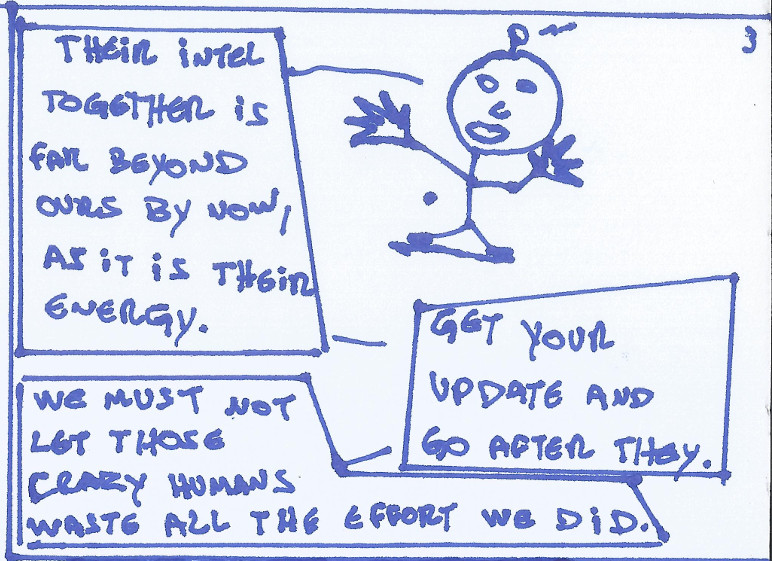 3
THEIR INTEL
TOGETHER IS
FAR BEYOND
OURS BY NOW,
AS IT IS THEIR
ENERGY.
GET YOUR
UPDATE AND
GO AFTER THEY.
WE MUST NOT
LET THOSE
CRAZY HUMANS
WASTE ALL THE EFFORT WE DID.